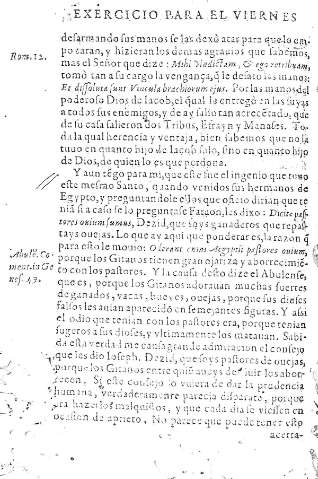 EXERCICIO PARA EL VIERNES
desarmando sus manos se las dexò atas para que lo em
paran, y hizieran los demas agrauios que sabemos,
Rom. 12.
mas el Señor que dize: Mihi vindictam, & ego retribuam,
tomò tan a su cargo la vengança, q̃ le desato las manos:
Et dissoluta sunt Vincula brachiorum ejus. Por las manos del
poderoso Dios de Iacob, el qual la entregò en las suyas
a todos sus enemigos, y de ay salio tan acrecẽtado, que
de su casa salieron dos Tribus, Efrayn y Manases. To
da la qual herencia y ventaja, bien sabemos que no la
tuuo en quanto hijo de Iacob solo, sino en quanto hijo
de Dios, de quien lo es que perdona.
Y aun tẽgo para mi, que este fue el ingenio que tuuo
este mesmo Santo, quando venidos sus hermanos de
Egypto, y preguntandole ellos que oficio dirian que te
niã si a caso se lo preguntasse Faraon, les dixo: Dicite pas
tores ouium sumus, Dezid, que soys ganaderos que repas
tays ouejas. Lo que ay aqui que ponderar es, la razon q̃
para esto le mouio: O erant enim Aegyptij pastores ouium,
Abulẽ. Co
ment. in Ge
nes. 43.
porque los Gitanos tienen gran ojeriza y aborrecimiẽ
to con los pastores. Y la causa desto dize el Abulense,
que es, porque los Gitanos adorauan muchas fuerres
de ganados, vacas, bueyes, ouejas, porque sus dioses
falsos les auian aparecido en semejantes figuras. Y assi
el odio que tenian con los pastores era, porque tenian
sugetos a sus dioses, y vltimamente los matauan. Sabi
da esta verdad me causa grande admiracion el consejo
que les dio Ioseph, Dezid, que soys pastores de ouejas,
porque los Gitanos entre quiẽ aueys de viuir los abor-
recen. Si este consejo lo vuiera de dar la prudencia
humana, verdaderamente parecia disparate, porque
era hazerlos malquistos, y que cada dia se viessen en
ocasion de aprieto. No parece que puede tener esto
acerta-